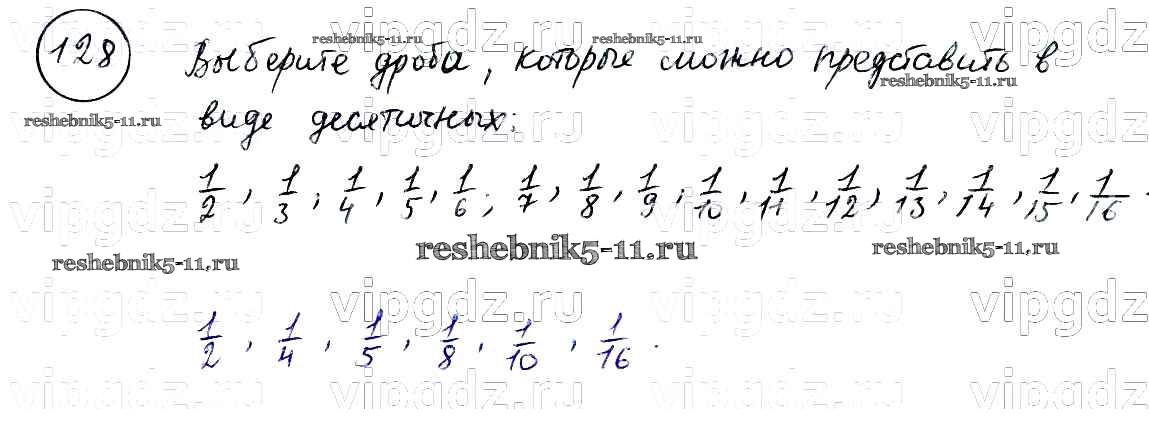 128 Выберите дроби, которые можно представить в
виде десятичных:
1/2, 1/3, 1/4, 1/5, 1/6, 1/7, 1/8, 1/9, 1/10, 1/11, 1/12, 1/13, 1/14, 1/15, 1/16.
1/2, 1/4, 1/5, 1/8, 1/10, 1/16.
vipgdz.ru vipgdz.ru vipgdz.ru vipgdz
reshebnik5-11.ru reshebnik5-11.ru
reshebnik5-11.ru
reshebnik5-11.ru
vipgdz.ru vipgdz.ru vipgdz.ru vipgdz
vipgdz.ru vipgdz.ru vipgdz.ru vipgdz
reshebnik5-11.ru reshebnik5-11.ru reshebnik5-11.ru
vipgdz.ru vipgdz.ru vipgdz.ru vipgdz
vipgdz.ru vipgdz.ru vipgdz.ru vipgdz